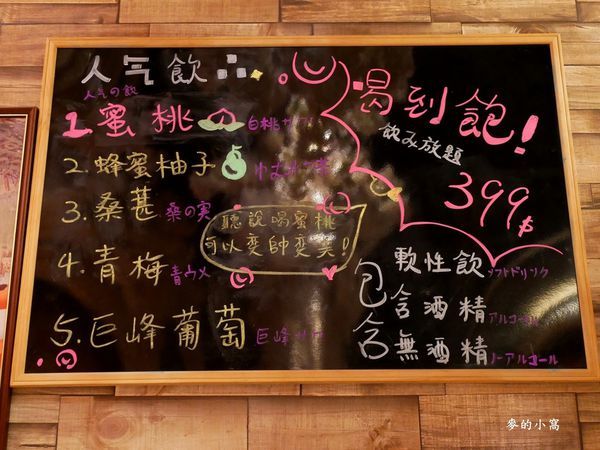 人气飲
人気の飲
1.蜜桃 白桃サワー
2.蜂蜜柚子
3.桑葚 桑の実
4.青梅 青ウメ
5.巨峰葡萄 巨峰サワー
聽說喝蜜桃
可以变帥变美!
喝到飽!
飲み放題
399$
包含
軟性飲 ソフトドリンク
含酒精 アルコール
無酒精 ノーアルコール
麥的小窩